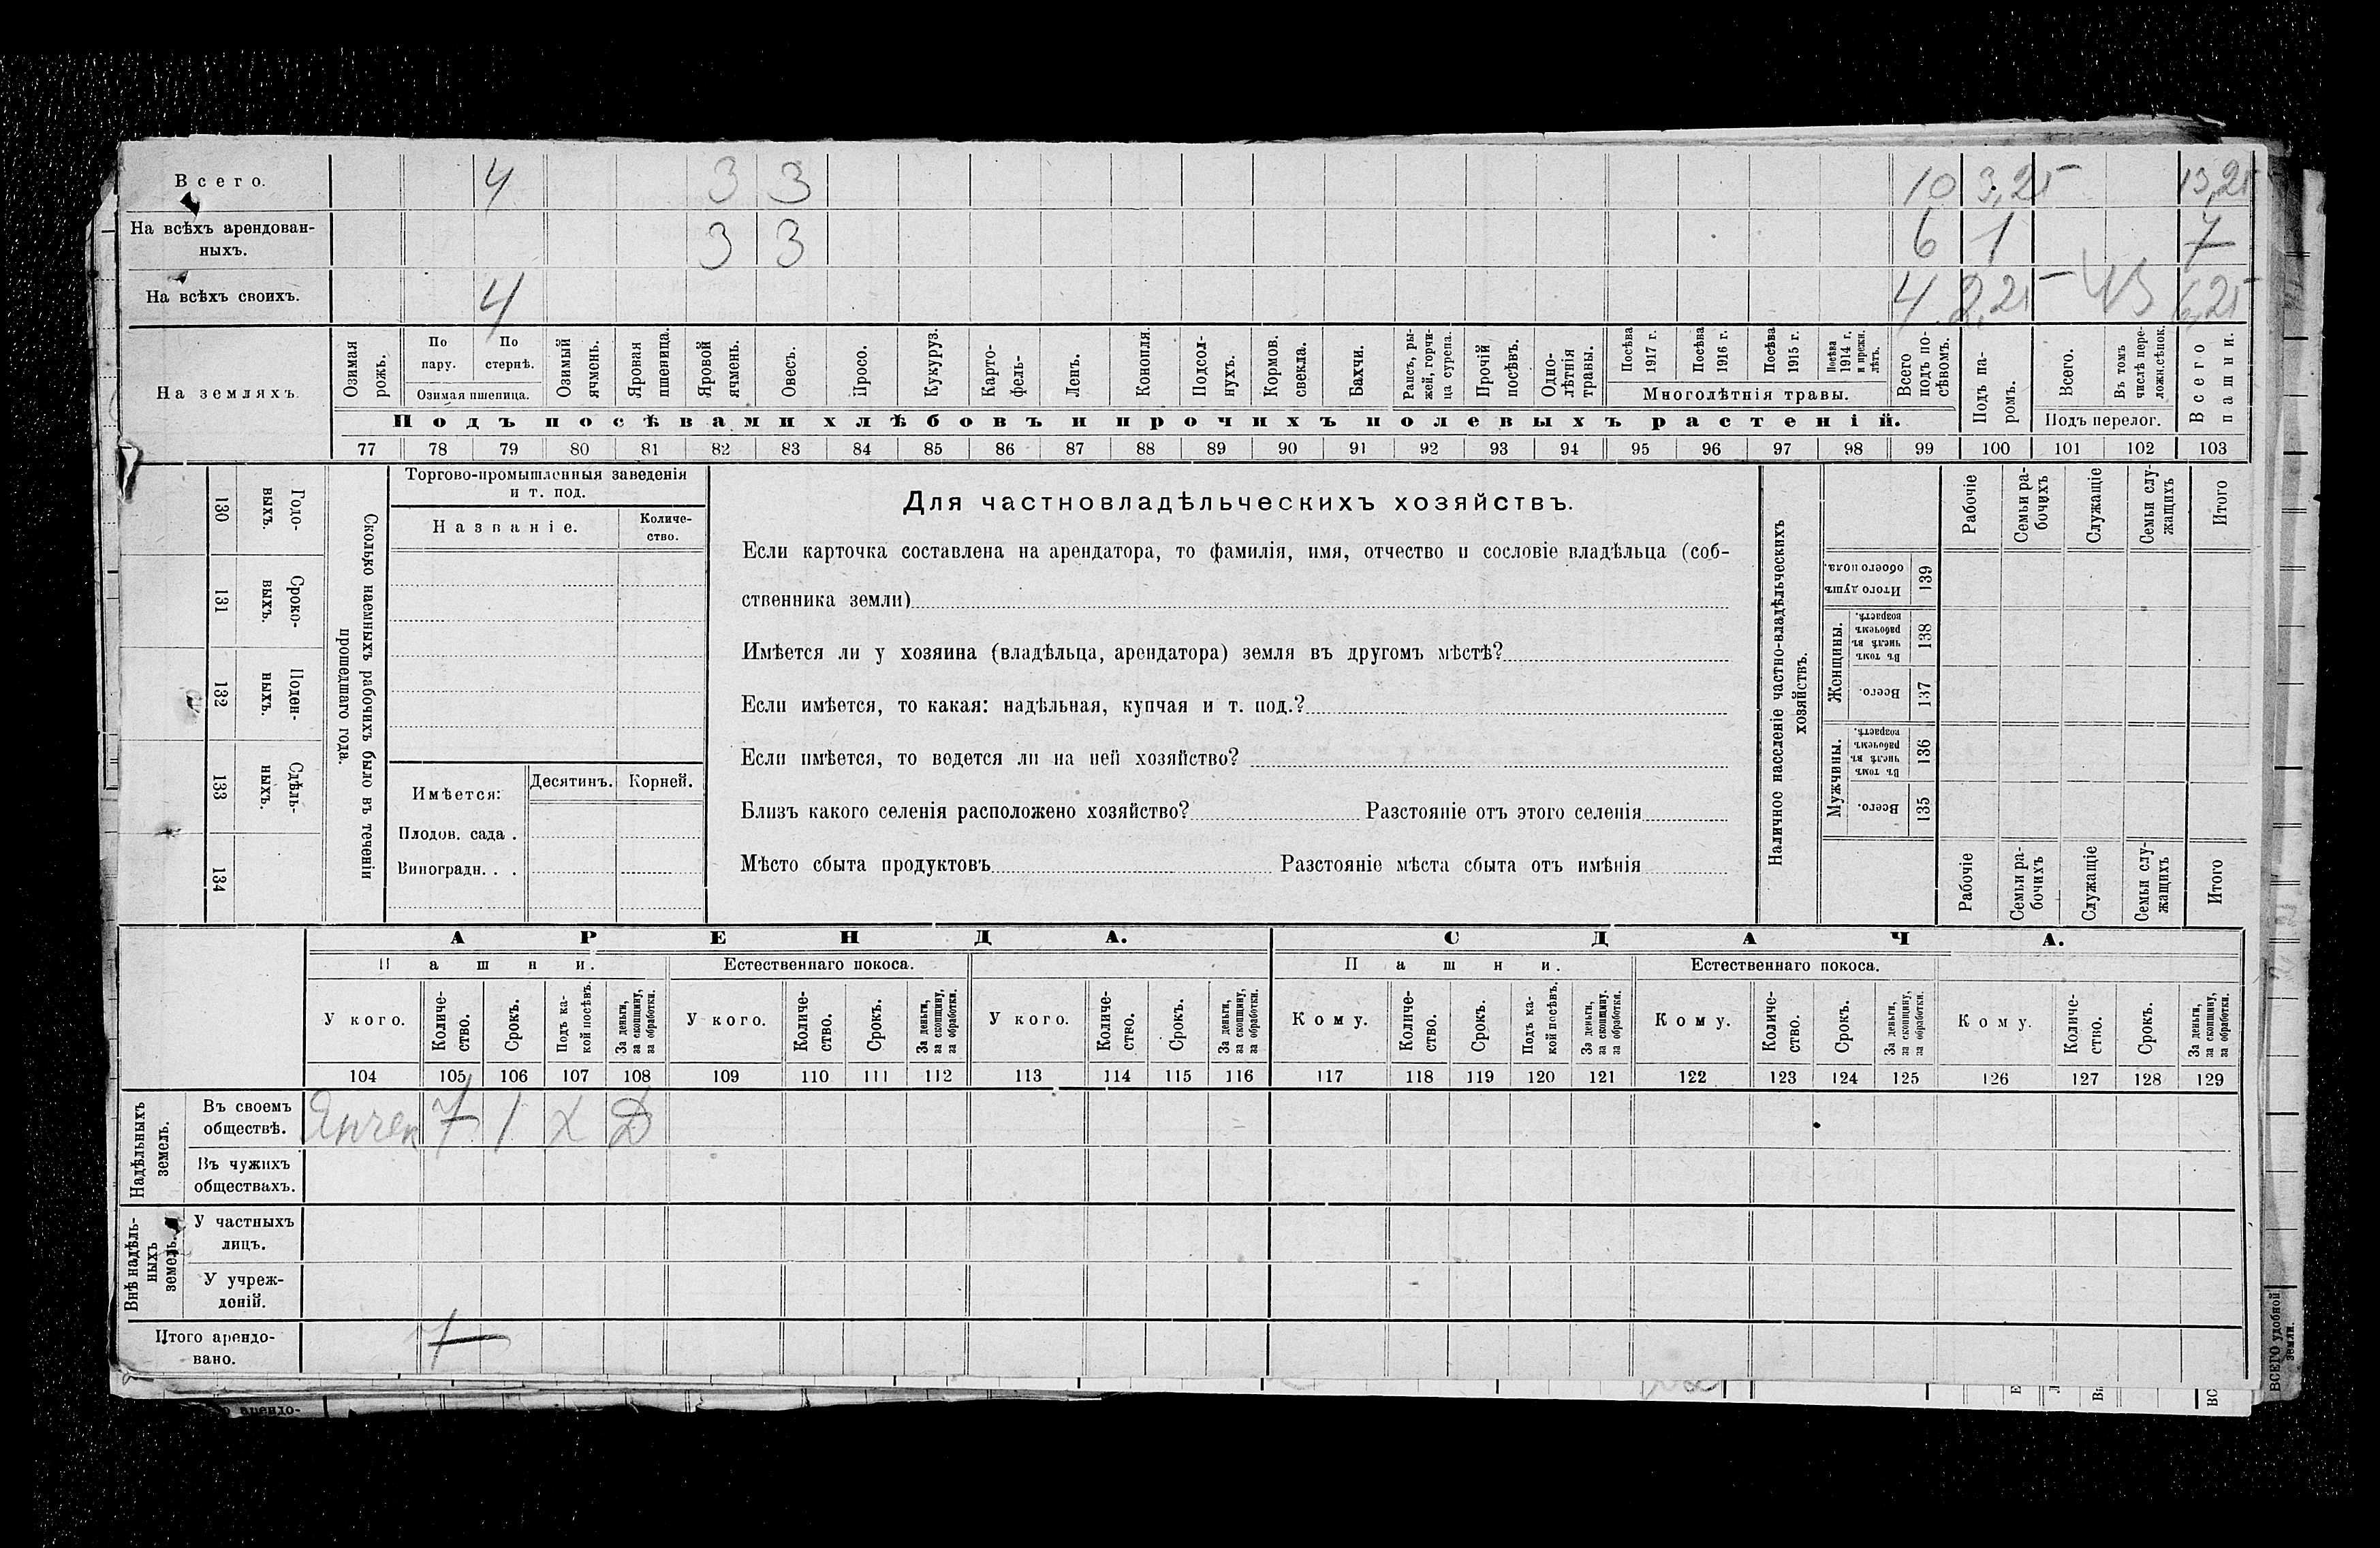 Всего. 4 3 3 10 3,25 13,25
На всѣхъ арендован-
ныхъ. 3 3 6 1 7
На всѣхъ своихъ. 4 4 2,25 6,25
На земляхъ
Озимая рожь.
По пару.
По стернѣ.
Озимая пшеница.
Озимый ячмень.
Яровая пшеница.
Яровой ячмень.
Овесъ.
Просо.
Кукуруз.
Карто-
фель-
Ленъ.
Конопля.
Подсол-
нухъ.
Кормов.
свекла.
Бахчи.
Рапсъ, ры-
жей, горчи-
ца сурепа.
Прочій
посѣвъ.
Одно-
лѣтнія
травы.
Посѣва
1917 г.
Посѣва
1916 г.
Посѣва
1915 г.
Посѣва
1914 г.
и прежн.
лѣтъ.
Многолѣтнія травы.
Всего
подъ по-
сѣвомъ.
Подъ па-
ромъ.
Всего.
Въ томъ
числѣ пере-
ложн.сѣнок.
Подъ перелог.
Всего
пашни.
Подъ посѣвами хлѣбовъ и прочихъ полевыхъ растеній.
77 78 79 80 81 82 83 84 85 86 87 88 89 90 91 92 93 94 95 96 97 98 99 100 101 102 103
130 Годо-
выхъ.
131 Сроко-
выхъ.
132 Поден-
ныхъ.
133 Сдѣль-
ныхъ.
134
Сколько наемныхъ рабочихъ было въ теченіи
прошедшаго года.
Торгово-промышленныя заведенія
и т. под.
Названіе.
Количе-
ство.
Имѣется:
Десятинъ.
Корней.
Плодов. сада .
Виноградн. . .
Для частновладѣльческихъ хозяйствъ.
Если карточка составлена на арендатора, то фамилія, имя, отчество и сословіе владѣльца (соб-
ственника земли)
Имѣется ли у хозяина (владѣльца, арендатора) земля въ другомъ мѣстѣ?
Если имѣется, то какая: надѣльная, купчая и т. под.?
Если имѣется, то ведется ли на ней хозяйство?
Близъ какого селенія расположено хозяйство? Разстояніе отъ этого селенія
Мѣсто сбыта продуктовъ Разстояніе мѣста сбыта отъ имѣнія
Наличное населеніе частно-владѣльческихъ
хозяйствъ.
Рабочіе
Семьи ра-
бочихъ
Служащіе
Семьи слу-
жащихъ
Итого
Итого душъ
обоего пола.
139
Женщины.
Въ томъ
числѣ въ
рабочемъ
возрастѣ.
138
Всего.
137
Мужчины.
Въ томъ
числѣ въ
рабочемъ
возрастѣ.
136
Всего.
135
Рабочіе
Семьи ра-
бочихъ
Служащіе
Семьи слу-
жащихъ
Итого
АРЕНДА. СДАЧА.
Пашни. Естественнаго покоса. Пашни. Естественнаго покоса.
У кого.
Количе-
ство.
Срокъ.
Подъ ка-
кой посѣвъ.
За деньги,
за скопщину,
за обработки.
У кого.
Количе-
ство.
Срокъ.
За деньги,
за скопщину,
за обработки.
У кого.
Количе-
ство.
Срокъ.
За деньги,
за скопщину,
за обработки.
Кому.
Количе-
ство.
Срокъ.
Подъ ка-
кой посѣвъ.
За деньги,
за скопщину.
за обработки.
Кому.
Количе-
ство.
Срокъ.
За деньги,
за скопщину,
за обработки.
Кому.
Количе-
ство.
Срокъ.
За деньги,
за скопщину,
за обработки.
104 105 106 107 108 109 110 111 112 113 114 115 116 117 118 119 120 121 122 123 124 125 126 127 128 129
Надѣльныхъ
земель.
Въ своемъ
обществѣ. 7 1 Х Д
Въ чужихъ
обществахъ.
Внѣ надѣль-
ныхъ
земель.
У частныхъ
лицъ.
У учреж-
деній.
Итого арендо-
вано. 7
ВСЕГО удобной
земли.
арендо-